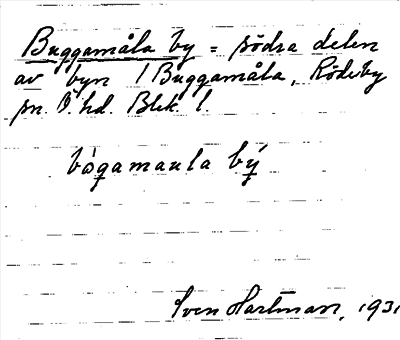 Buggamåla by = södra delen
av byn 1 Buggamåla, Rödeby
sn. Ö. hd. Blek. l.
bògamaula bý
Sven Hartman, 1931